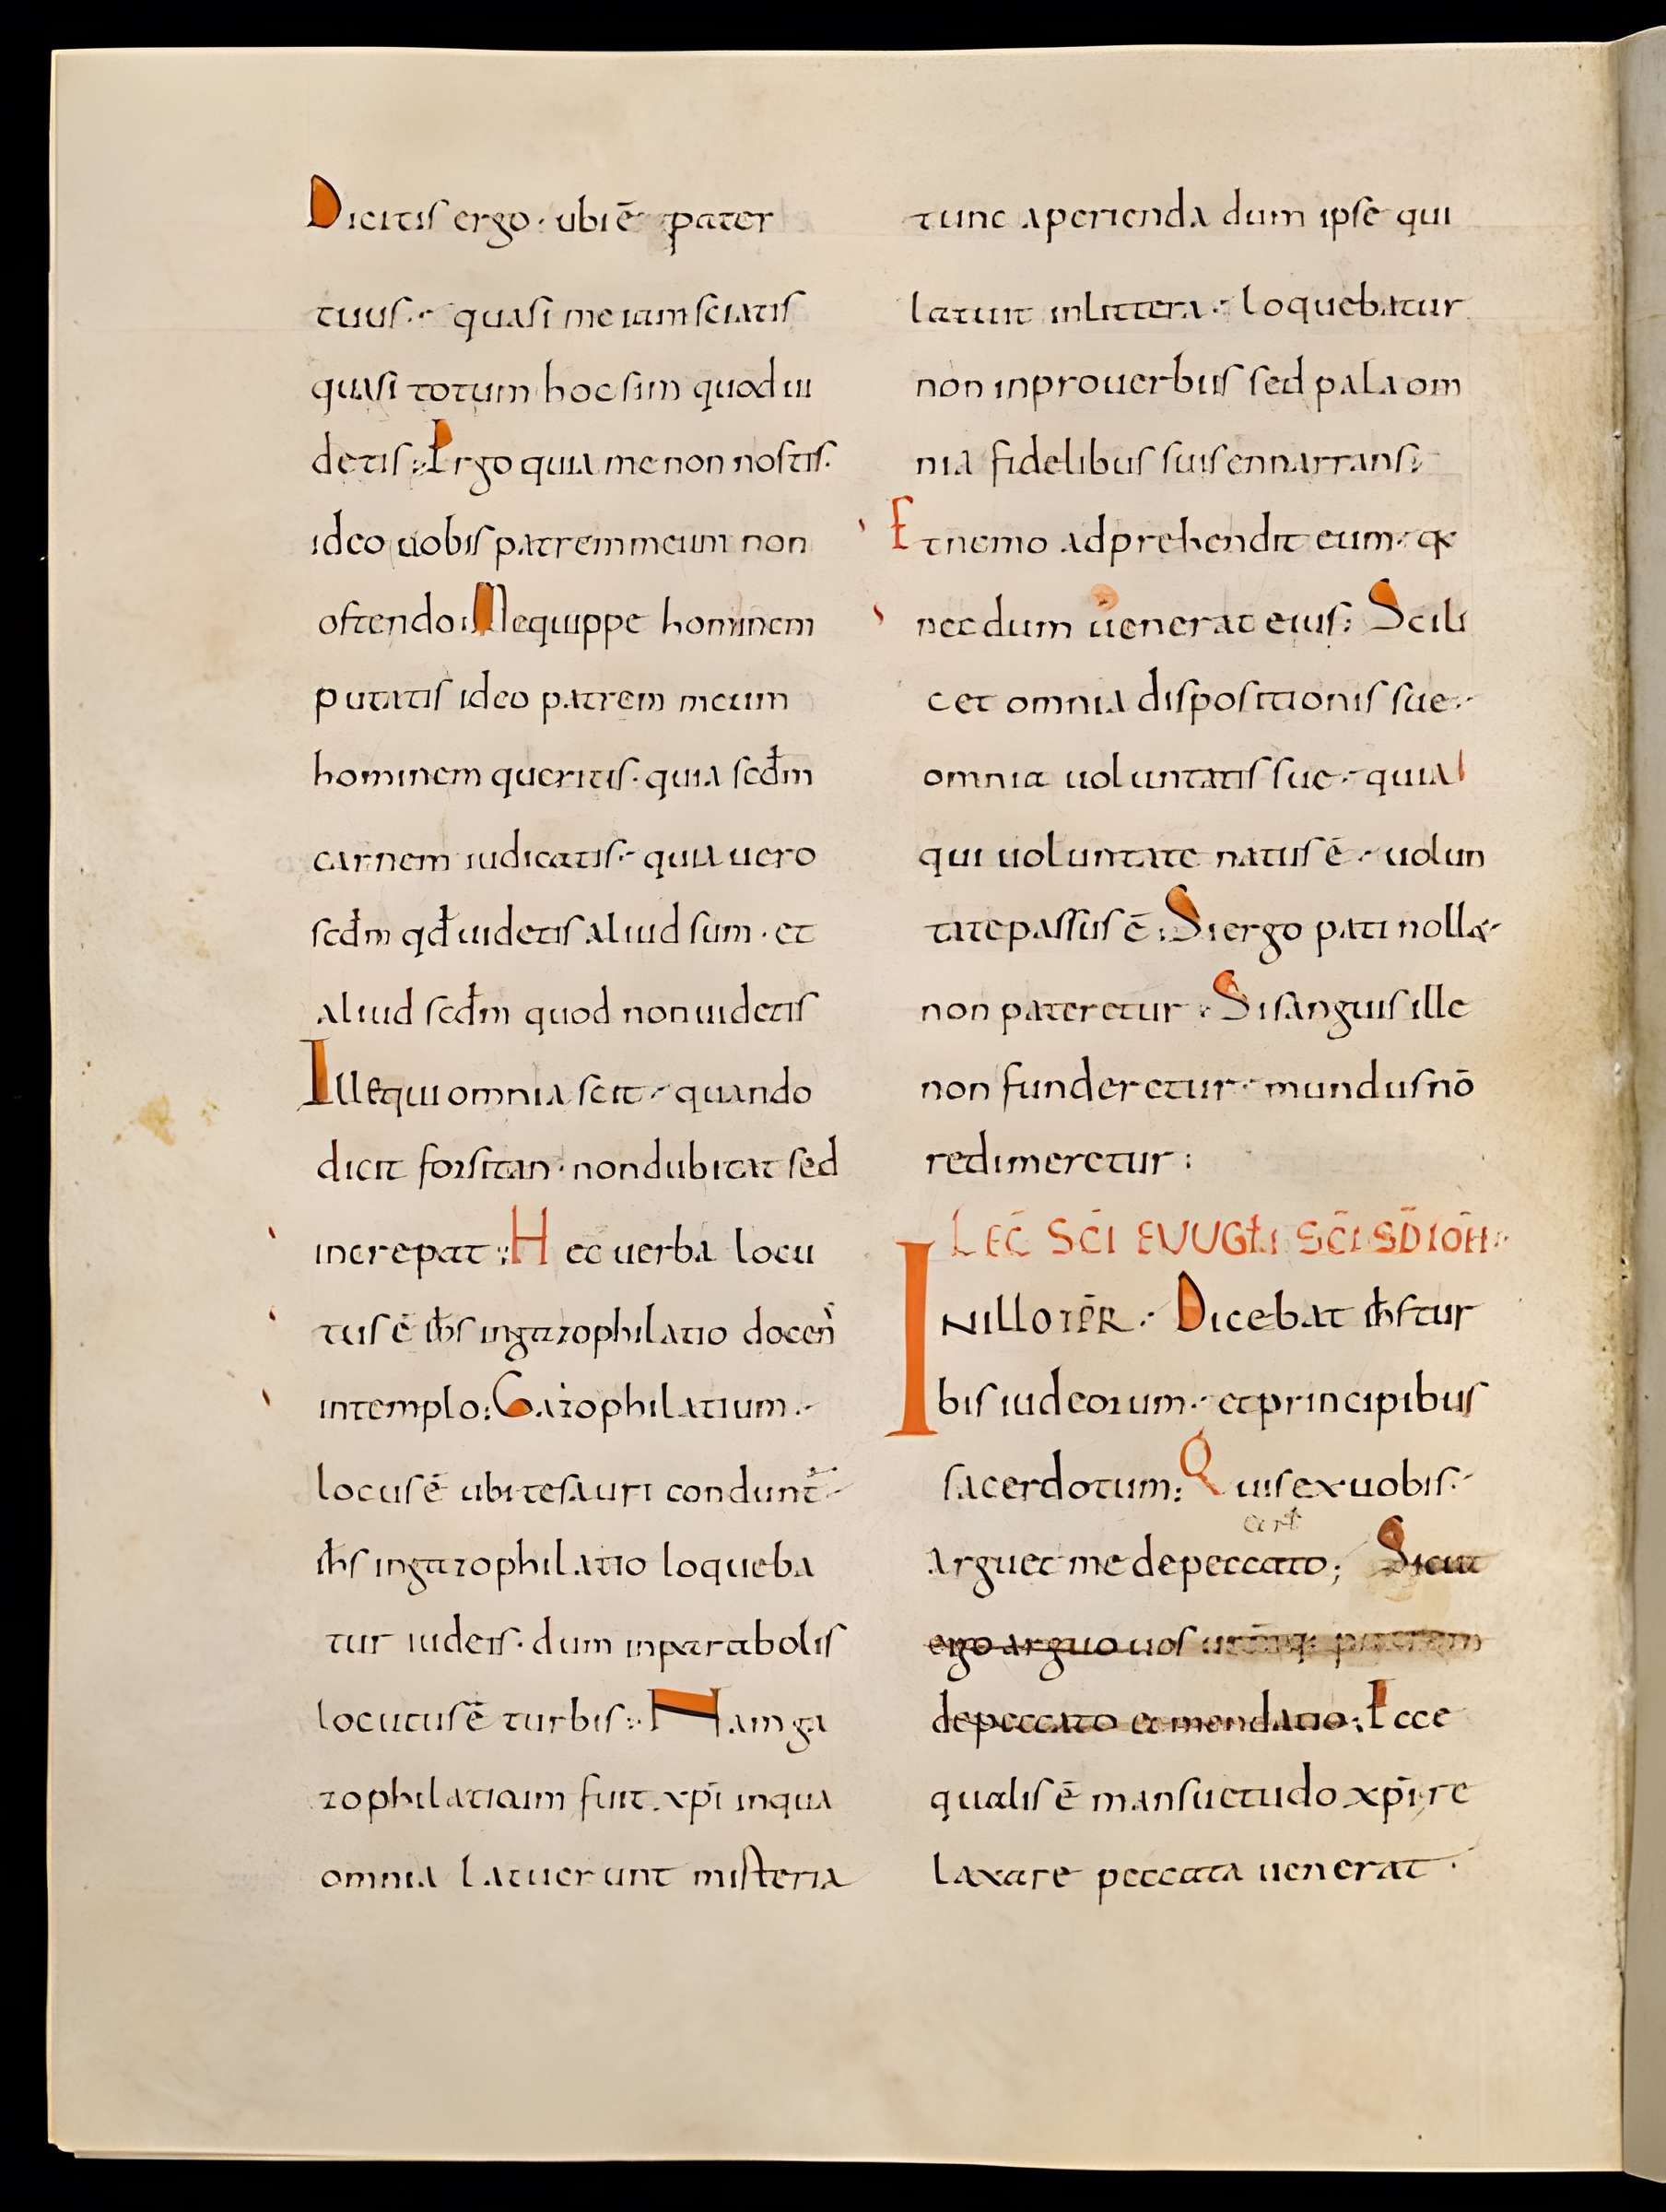 Dicitis ergo · ubi ē pater
tuus · quasi me iam sciatis
quasi totum hoc sim quod ui
detis : Ergo quia me non nostis ·
ideo uobis patrem meum non
ostendo : Me quippe hominem
putatis ideo patrem meum
hominem queritis · quia scđm
carnem iudicatis · quia uero
scđm qđ uidetis aliud sum · et
aliud scđm quod non uidetis
Ille qui omnia scit · quando
dicit forsitan · non dubitat sed
increpat : Hec uerba locu
tus ē ih̄s in gazophilatio docen̄
in templo : Gazophilatium ·
locus ē ubi tesauri condunt̄ ·
ih̄s in gazophilatio loqueba
tur iudeis · dum in parabolis
locutus ē turbis : Nam ga
zophilatium fuit xp̄i in qua
omnia latuerunt misteria
tunc aperienda dum ipse qui
latuit in littera · loquebatur
non in prouerbiis sed pala om
nia fidelibus suis ennarrans :
Et nemo adprehendit eum · q̄
necdum uenerat eius : Scili
cet omnia dispositionis sue ·
omnia uoluntatis sue · quia
qui uoluntate natus ē · uolun
tate passus ē : Si ergo pati nollę ·
non pateretur · Si sanguis ille
non funderetur · mundus nō
redimeretur :
LEC̄ SC̄I EVUGŁI SC̄I SD̄ IOH̄ :
IN ILLO TP̄R · Dicebat ih̄s tur
bis iudeorum · et principibus
sacerdotum : Quis ex uobis ·
arguet me de peccato ; Sicut
ergo arguo uos patrem
de peccato et mendatio : Ecce
qualis ē mansuetudo xp̄i re
laxare peccata uenerat ·